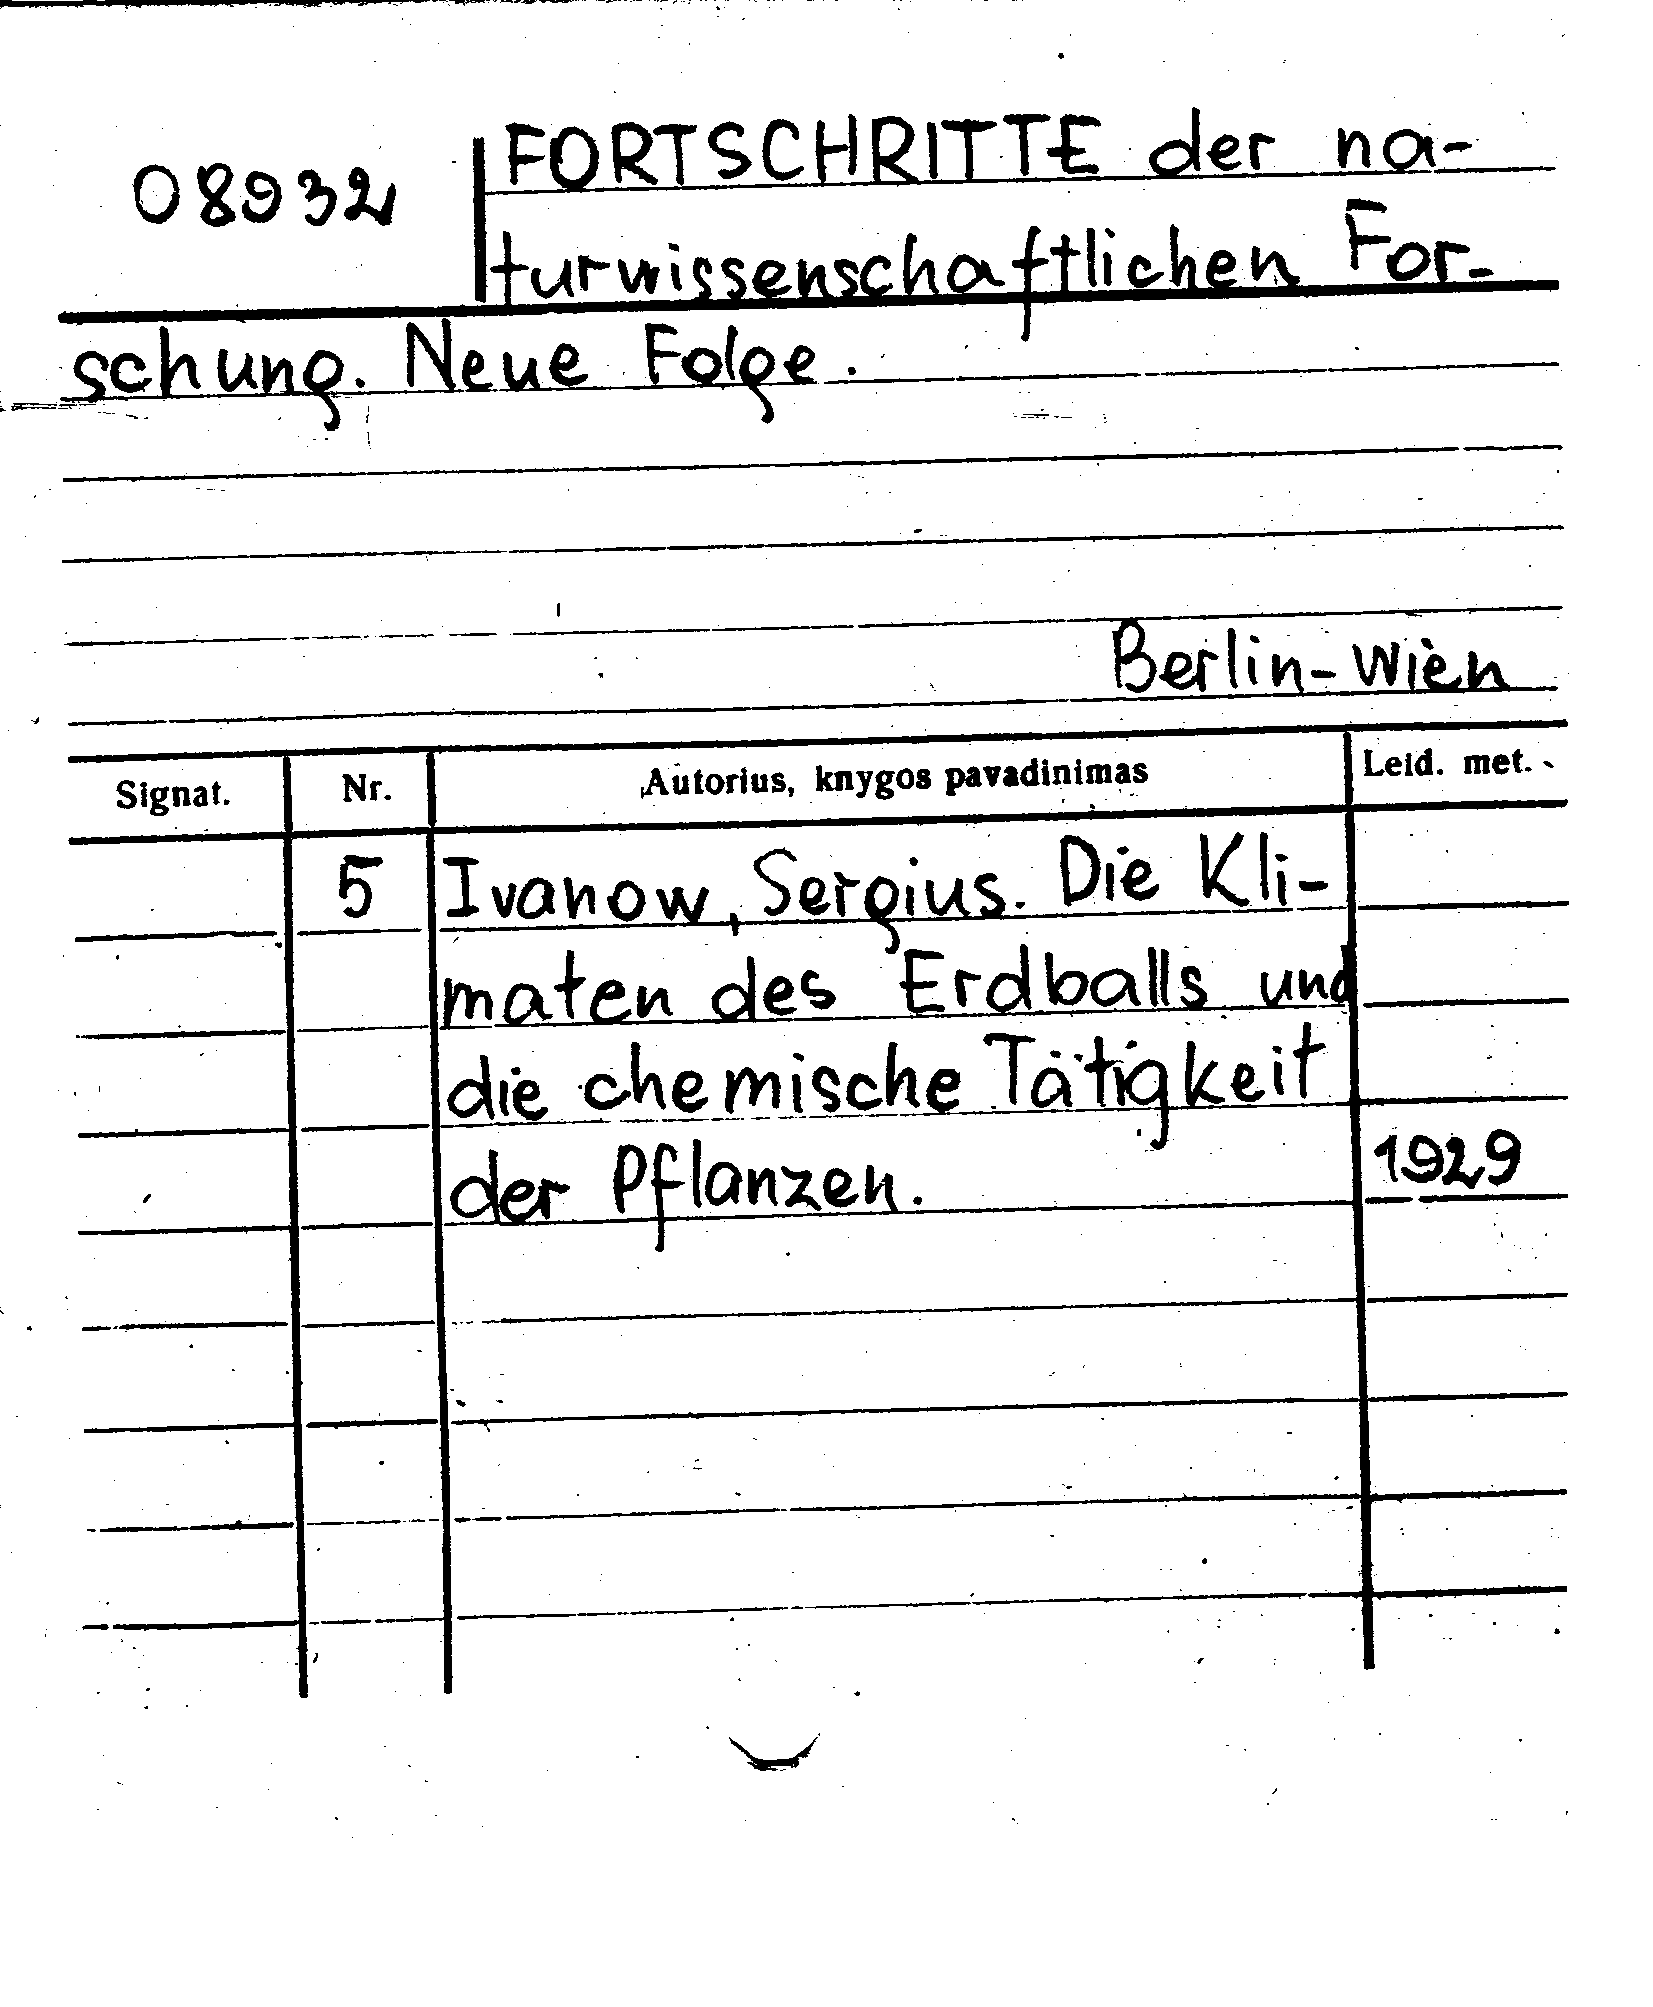 08932
FORTSCHRITTE der na-
turwissenschaftlichen For-
schung. Neue Folge.
Berlin-Wien
Signat. Nr. Autorius, knygos pavadinimas Leid. met.
5 Ivanow, Sergius. Die Kli-
maten des Erdballs und
die chemische Tätigkeit
der Pflanzen. 1929